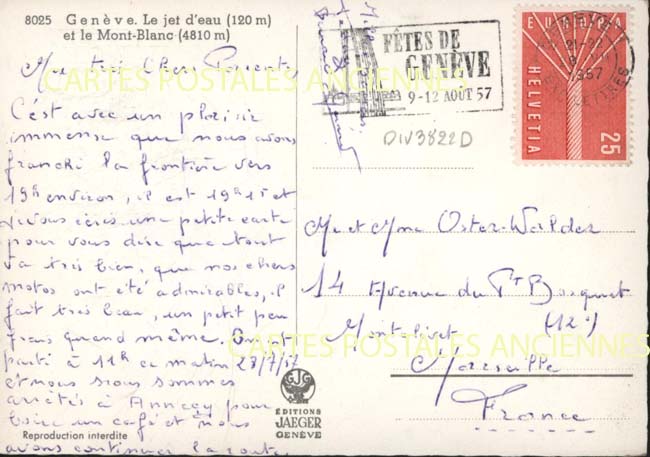 8025 Genève. Le jet d'eau (120 m)
et le Mont-Blanc (4810 m)
Mes très Chers Parents
C'est avec un plaisir
immense que nous avons
franchi la frontière vers
19h environ, il est 19h15 et
je vous écris une petite carte
pour vous dire que tout
va très bien, que nos chers
motos ont été admirables, il
fait très beau, un petit peu
frais quand même. On est
parti à 11h ce matin 28/7/57
et nous nous sommes
arrêtés à Annecy pour
boire un café et nous
avons continuer la route.
Reproduction interdite
FÊTES DE
GENÈVE
9-12 AOÛT 57
EUROPA
HELVETIA
25
1957
DIV3822D
Mr et Mme Oster-Walder
14 Avenue du Pt Bosquet
Montolivet (12e)
Marseille
France
ÉDITIONS
JAEGER
GENÈVE
CARTES POSTALES ANCIENNES
CARTES POSTALES ANCIENNES